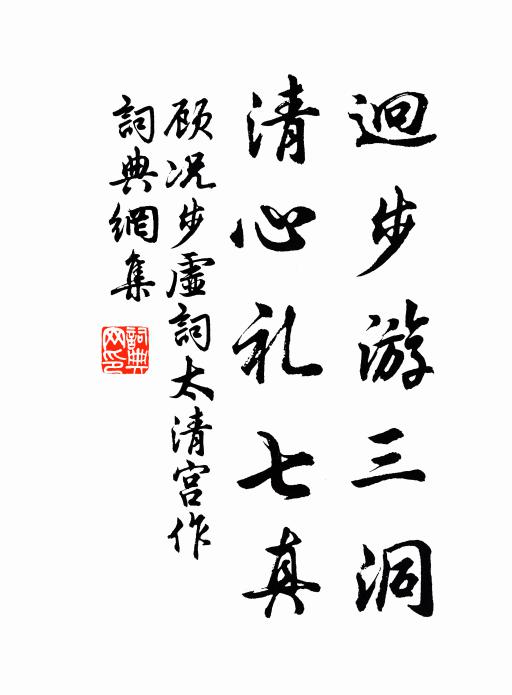 迥步游三洞
清心礼七真
顾况步虚詞太清宫作
詞典網集
詞典网印